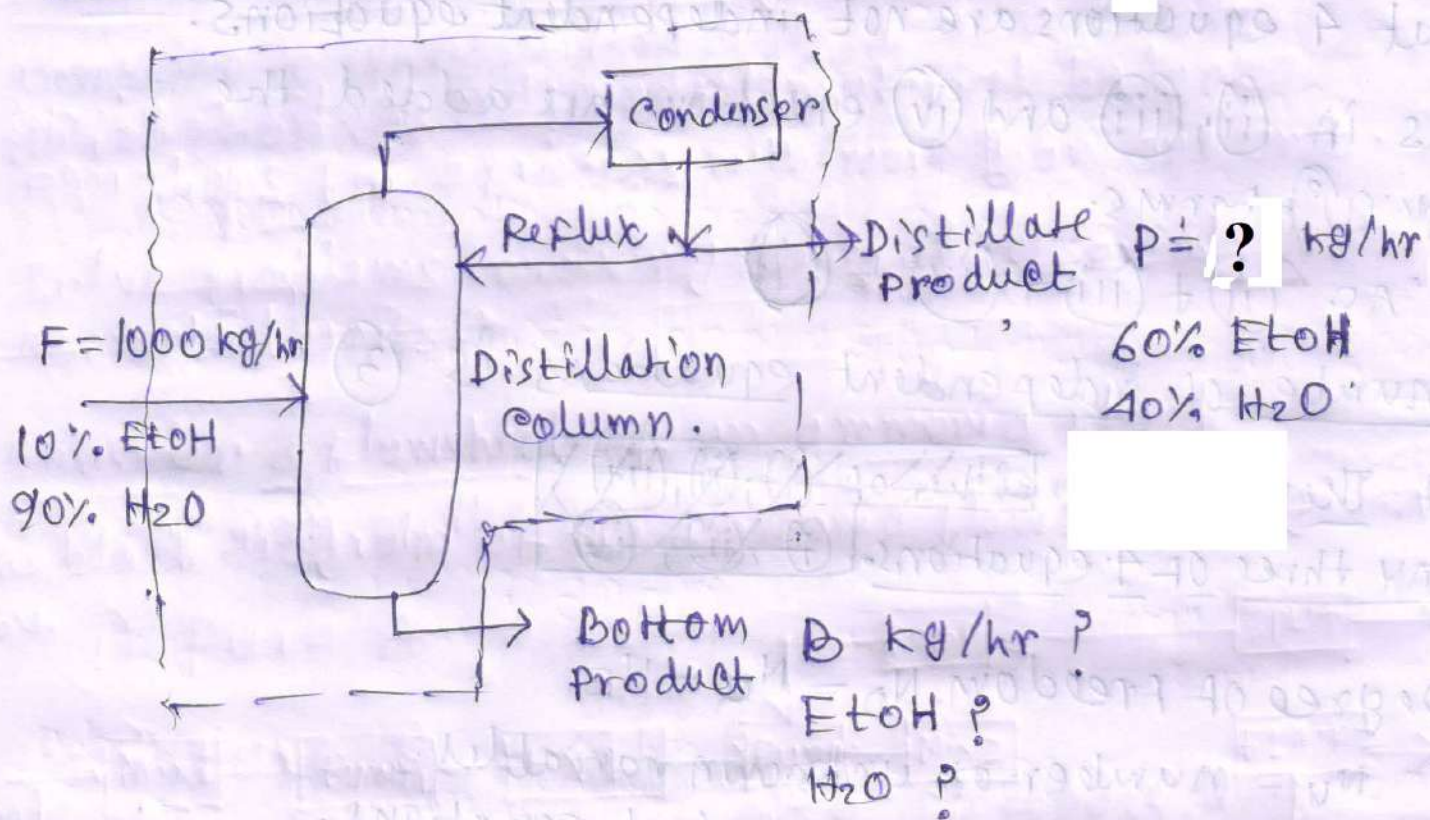 Condenser
Reflux
Distillate P = ? kg/hr
product
60% EtOH
40% H2O
F = 1000 kg/hr
10% EtOH
90% H2O
Distillation
column.
Bottom B kg/hr ?
product
EtOH ?
H2O ?